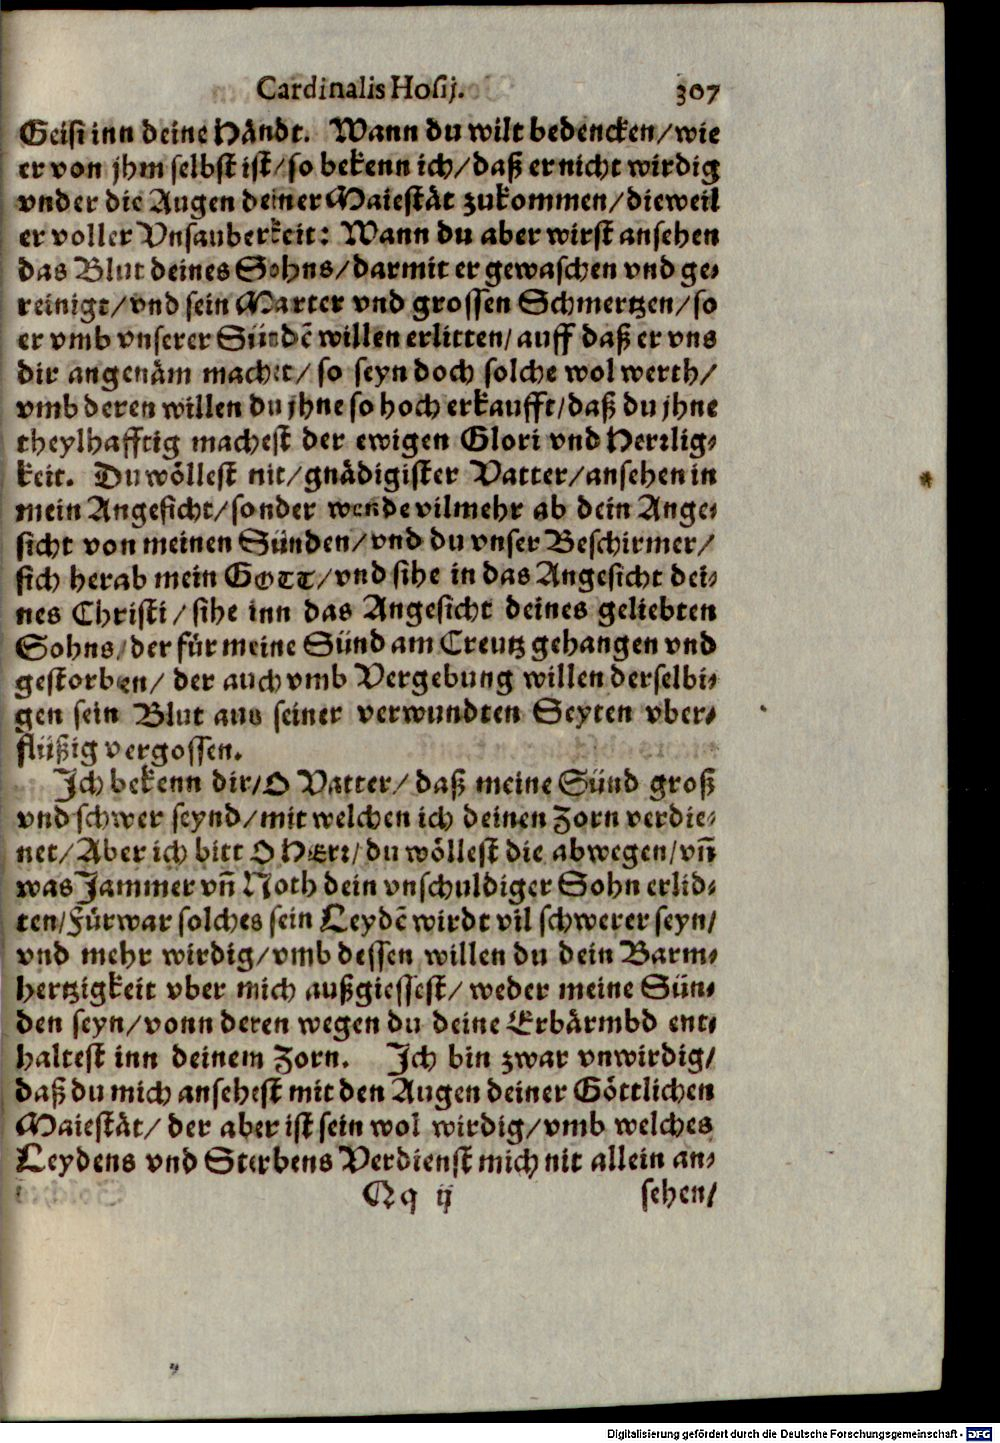 Cardinalis Hosij. 307
Geist inn deine Händt. Wann du wilt bedencken/ wie
er von jhm selbst ist/ so bekenn ich/ daß er nicht wirdig
vnder die Augen deiner Maiestät zukommen/ dieweil
er voller Vnsauberkeit: Wann du aber wirst ansehen
das Blut deines Sohns/ darmit er gewaschen vnd ge-
reinigt/ vnd sein Marter vnd grossen Schmertzen/ so
er vmb vnserer Sündẽ willen erlitten/ auff daß er vns
dir angenäm machet/ so seyn doch solche wol werth/
vmb deren willen du jhne so hoch erkaufft/ daß du jhne
theylhafftig machest der ewigen Glori vnd Herrlig-
keit. Du wöllest nit/ gnädigister Vatter/ ansehen in
mein Angesicht/ sonder wende vilmehr ab dein Ange-
sicht von meinen Sünden/ vnd du vnser Beschirmer/
sich herab mein GOTT/ vnd sihe in das Angesicht dei-
nes Christi/ sihe inn das Angesicht deines geliebten
Sohns/ der für meine Sünd am Creutz gehangen vnd
gestorben/ der auch vmb Vergebung willen derselbi-
gen sein Blut aus seiner verwundten Seyten vber-
flüßig vergossen.
Ich bekenn dir/ O Vatter/ daß meine Sünd groß
vnd schwer seynd/ mit welchen ich deinen Zorn verdie-
net/ Aber ich bitt O HErr/ du wöllest die abwegen/ vñ
was Jammer vñ Noth dein vnschuldiger Sohn erlid-
ten/ Fürwar solches sein Leydẽ wirdt vil schwerer seyn/
vnd mehr wirdig/ vmb dessen willen du dein Barm-
hertzigkeit vber mich außgiessest/ weder meine Sün-
den seyn/ vonn deren wegen du deine Erbärmbd ent-
haltest inn deinem Zorn. Ich bin zwar vnwirdig/
daß du mich ansehest mit den Augen deiner Göttlichen
Maiestät/ der aber ist sein wol wirdig/ vmb welches
Leydens vnd Sterbens Verdienst mich nit allein an-
Qq ij sehen/
Digitalisierung gefördert durch die Deutsche Forschungsgemeinschaft - DFG